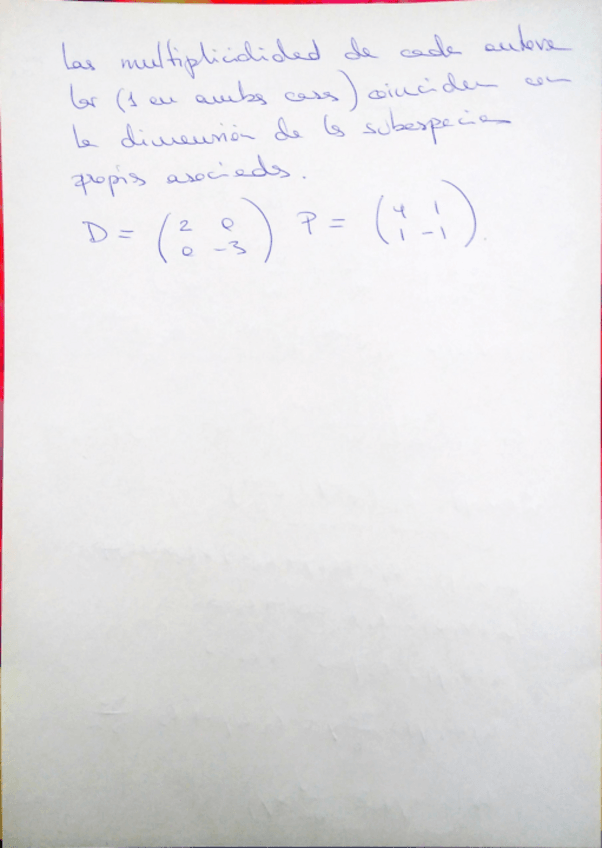 Las multiplicidided de cada autova
lor (1 en ambos casos) coinciden con
la dimensión de los subespacios
propios asociados.
D = (2 0 0 -3) P = (4 1 1 -1).